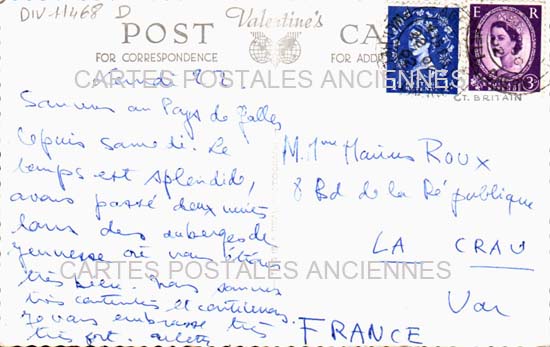 DIV-11468 D
POST CARD
Valentine's
FOR CORRESPONDENCE
FOR ADDRESS
GT. BRITAIN
E R
3D
CARTES POSTALES ANCIENNES
Sommes au Pays de Galles
depuis samedi. Le
temps est splendide,
avons passé deux nuits
dans des auberges de
jeunesse où nous étions
très bien. Nous sommes
très contentes et continuons.
Je vous embrasse très
très fort.
M. Mme Marius ROUX
8 Bd de la République
LA CRAU
Var
FRANCE
CARTES POSTALES ANCIENNES